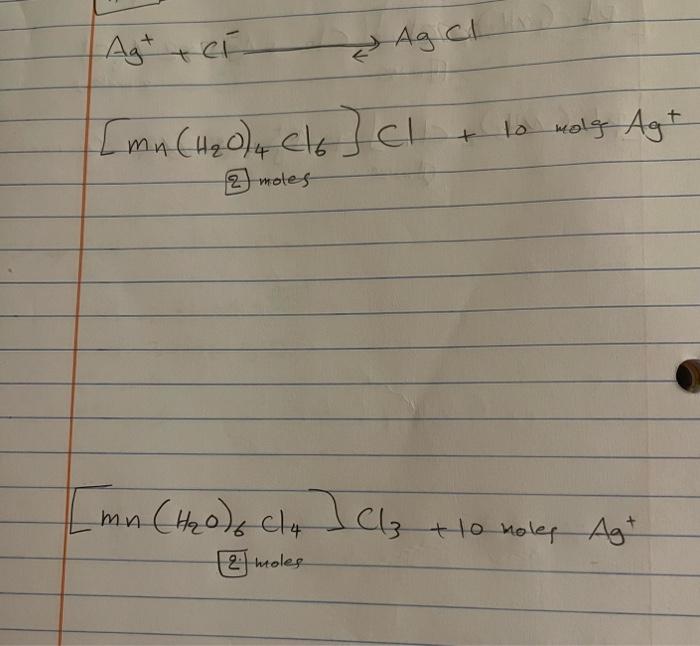 Ag⁺ + Cl⁻ ⇄ AgCl
[mn(H₂O)₄ Cl₆] Cl + 10 moles Ag⁺
2 moles
[mn(H₂O)₆ Cl₄] Cl₃ + 10 moles Ag⁺
2 moles